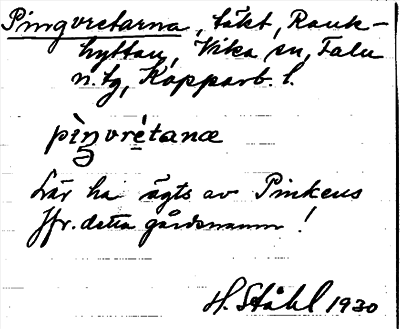 Pingvretarna, täkt, Rank-
hyttan, Vika sn, Falu
n. tg, Kopparb. l.
pìŋvrètanæ
Lär ha ägts av Pinkens
Jfr. detta gårdsnamn!
H. Ståhl 1930